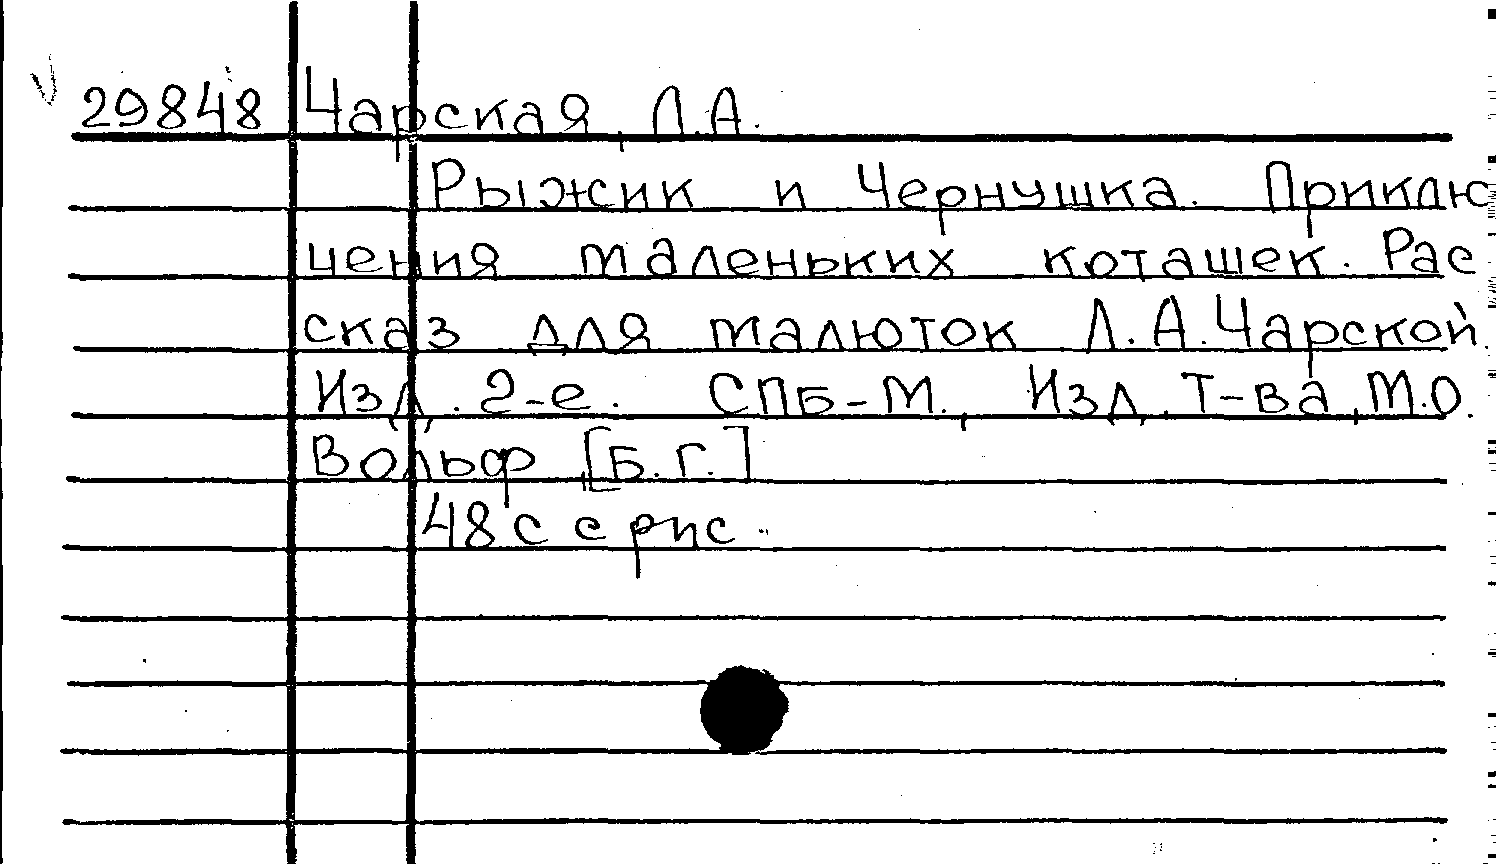 29848 Чарская, Л.А.
Рыжик и Чернушка. Приклю
чения маленьких коташек. Рас
сказ для малюток Л.А.Чарской.
Изд. 2-е. СПБ-М., Изд. Т-ва, М.О.
Вольф, [Б.г.]
48 с с рис.